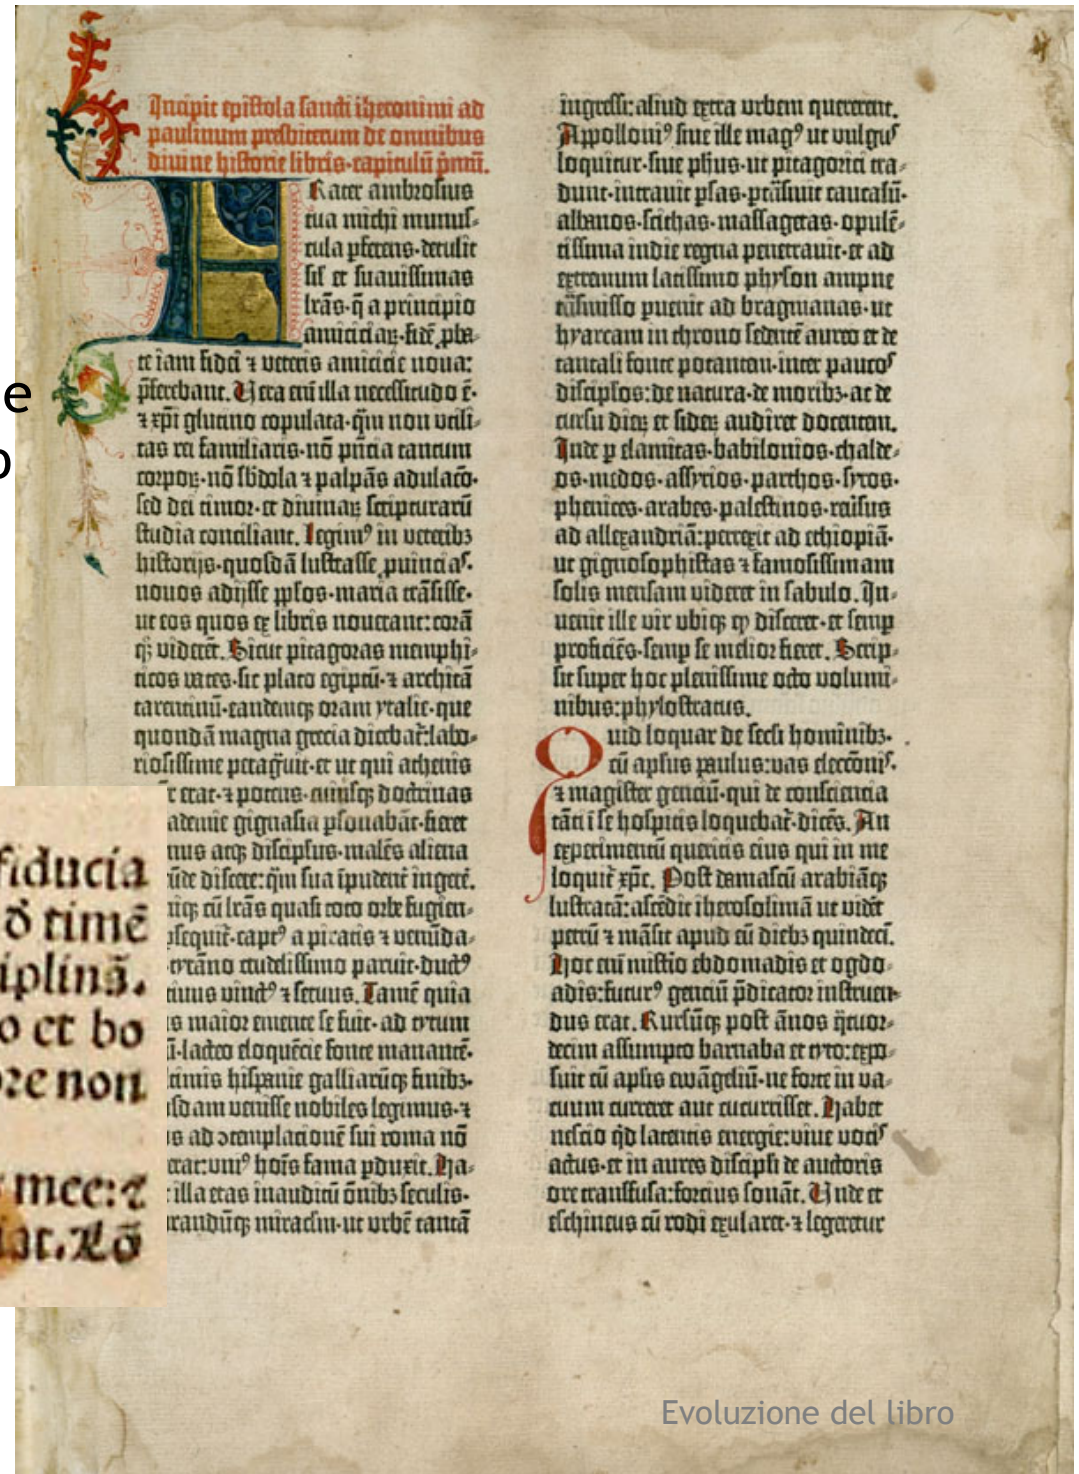 Incipit epistola sancti iheronimi ad
paulinum presbiterum de omnibus
divine historie libris·capitulū p̄mū.
Frater ambrosius
tua michi munus-
cula pferens·detulit
sil et suavissimas
lrās·q̄ a principio
amiciciaꝝ·fidē ꝓba-
te iam fidei ⁊ veteris amicicie nova:
p̄ferebant. Vera eni illa necessitudo ē·
⁊ xpī glutino copulata·qm̄ non utili-
tas rei familiaris·nō p̄ntia tantum
corpoꝝ·nō sbdola ⁊ palpās adulacō·
sed dei timor·et divinaꝝ scripturarū
studia conciliant. Legimꝰ in veteribꝫ
historijs·quosdā lustrasse ꝓuincias·
novos adijsse pplos·maria trāsisse·
ut eos quos ex libris noverant: corā
qꝫ viderēt. Sicut pitagoras memphi-
ticos vates·sic plato egiptū·⁊ architā
tarentinū·eandemqꝫ oram ytalie·que
quondā magna grecia dicebat̄: labo-
riosissime peragūit·et ut qui athenis
erat·⁊ potens·cuiusqꝫ doctrinas
ademie gignasia psonabāt·fieret
nus atqꝫ discipsus·malēs aliena
ūde discere: qm̄ sua īpudent̄ ingere.
niqꝫ cū lrās quasi toto orbe fugien-
psequit̄·captꝰ a piratis ⁊ venūda-
tyrāno crudelissimo paruit·ductꝰ
tivus vinctꝰ ⁊ servus. Tamē quia
s maior emente se fuit·ad tytum
ū·lacteo eloquēcie fonte manantē·
timis hispanie galliarūqꝫ finibꝫ·
sdam venisse nobiles legimus·⁊
s ad ꝯtemplacionē sui roma nō
erat: uniꝰ hoīs fama pduxit. Ha-
illa etas inauditū ōnibꝫ seculis·
randūqꝫ miraclm·ut urbē tantā
ingressi: aliud extra urbem quererent.
Appolloniꝰ sive ille magꝰ ut vulgus
loquitur·sive phus·ut pitagorici tra-
dunt·intravit psas·ptrāsivit caucasū·
albanos·scithas·massagetas·opulē-
tissima indie regna penetravit·et ad
extremum latissimo physon ampne
trāsmisso pvenit ad bragmanas·ut
hyarcam in throno sedentē aureo et de
tantali fonte potantem·inter paucos
discipsos: de natura·de moribꝫ·ac de
cursu dieꝝ et sideꝝ audiret docentem.
Inde p elamitas·babilonios·chalde-
os·medos·assyrios·parthos·syros·
phenices·arabes·palestinos·reūsus
ad allexandriā: perrexit ad ethiopiā·
ut gignosophistas ⁊ famosissimam
solis mensam videret in sabulo. In-
venit ille vir ubiqꝫ qꝫ disceret·et semp
proficiēs·semp se melior fieret. Scrip-
sit super hoc plenissime octo volumi-
nibus: phylostratus.
Quid loquar de secli hominibꝫ·
cū apsus paulus: vas elecconis·
⁊ magister genciū·qui de consciencia
tāti ī se hospitis loquebat̄·dicēs. An
experimentū queritis eius qui in me
loquit̄ xpc. Post damascū arabiāqꝫ
lustratā: ascēdit iherosolimā ut vidēt
petrū ⁊ māsit apud eū diebꝫ quindeci.
Hoc eni mistio ebdomadis et ogdo-
adis: futurꝰ genciū p̄dicator instruen-
dus erat. Rursūqꝫ post ānos q̄tuor-
decim assumpto barnaba et tyto: expo-
suit cū apsis ewāgeliū·ne forte in va-
cuum curreret aut cucurrisset. Habet
nescio qd latentis energie: vive vocis
actus·et in aures discipsi de auctoris
ore transfusa: forcius sonāt. Unde et
eschineus cū rodi exularet·⁊ legeretur
e
o
fiducia
ō timē
iplinā.
o et bo
ore non
mee: ⁊
at. Lō
Evoluzione del libro